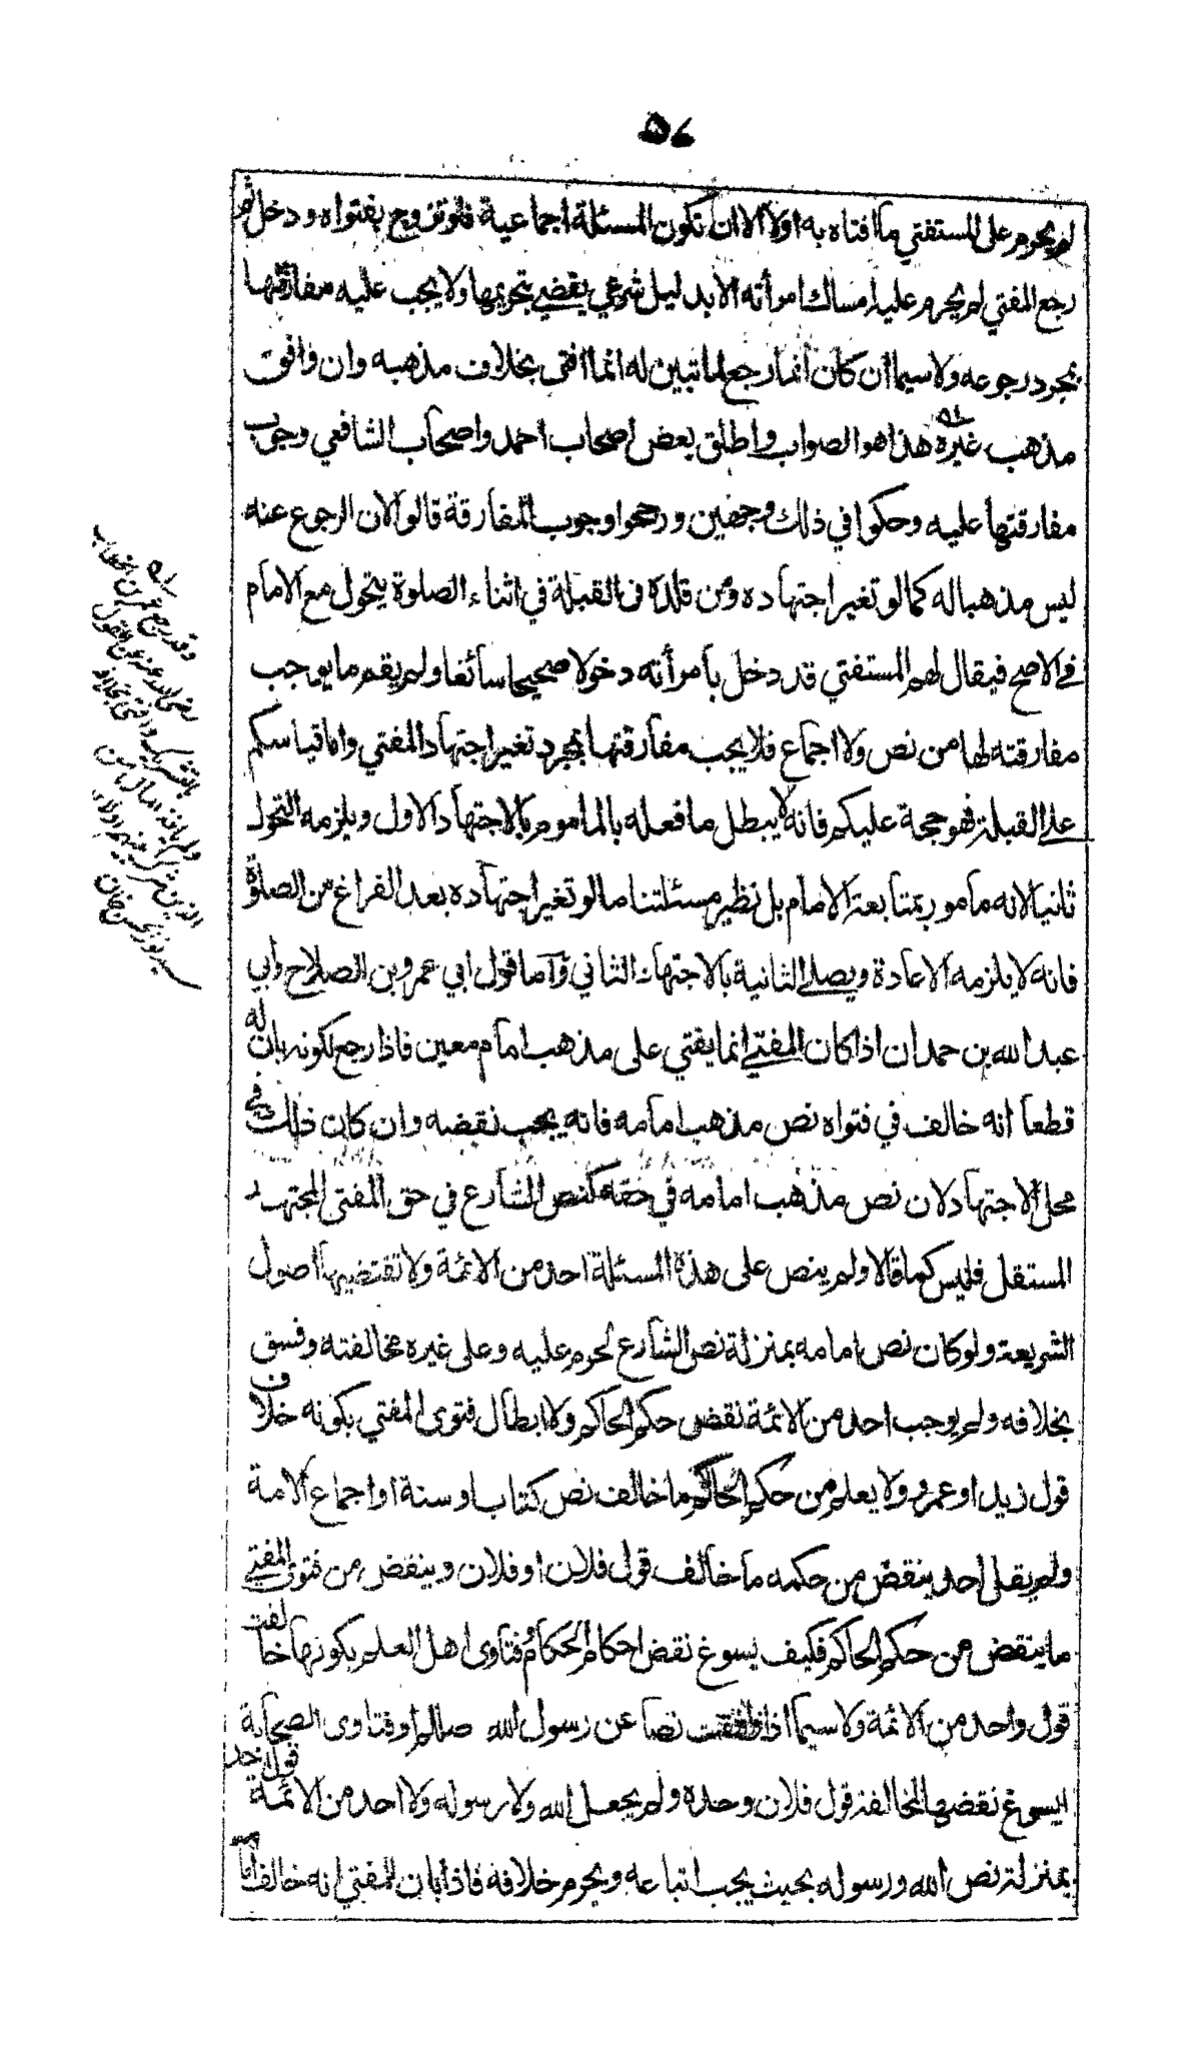 ٥٧
لم يحرم على المستفتي ما افتاه به اولا الا ان تكون المسئلة اجماعية فلو تزوج بفتواه ودخل ثم
رجع المفتي لم يحرم عليه امساك امرأته الا بدليل شرعي يقضي بتحريمها ولا يجب عليه مفارقتها
بمجرد رجوعه ولا سيما ان كان انما رجع لما تبين له انما افتى بخلاف مذهبه وان وافق
مذهب غيره هذا هو الصواب واطلق بعض اصحاب احمد واصحاب الشافعي وجوب
مفارقتها عليه وحكوا في ذلك وجهين ورجحوا وجوب المفارقة قالوا لان الرجوع عنه
ليس مذهبا له كما لو تغير اجتهاده ومن قلده في القبلة في اثناء الصلوة يتحول مع الامام
في الاصح فيقال لهم المستفتي قد دخل بامرأته دخولا صحيحا سائغا ولم يقم ما يوجب
مفارقته لها من نص ولا اجماع فلا يجب مفارقتها بمجرد تغير اجتهاد المفتي واما قياسكم
على القبلة فهو حجة عليكم فانه لا يبطل ما فعله بالماموم بالاجتهاد الاول ويلزمه التحول
ثانيا لانه مامور بمتابعة الامام بل نظير مسئلتنا ما لو تغير اجتهاده بعد الفراغ من الصلوة
فانه لا يلزمه الاعادة ويصلي الثانية بالاجتهاد الثاني وآما قول ابي عمرو بن الصلاح وأبي
عبد الله بن حمدان اذا كان المفتي انما يفتي على مذهب امام معين فاذا رجع لكونه بان له
قطعا انه خالف في فتواه نص مذهب امامه فانه يجب نقضه وان كان ذلك في
محل الاجتهاد لان نص مذهب امامه في حقه كنص الشارع في حق المفتي المجتهد
المستقل فليس كما قالا ولم ينص على هذه المسئلة احد من الائمة ولا تقتضيها اصول
الشريعة ولو كان نص امامه بمنزلة نص الشارع لحرم عليه وعلى غيره مخالفته وفسق
بخلافه ولم يوجب احد من الائمة نقض حكم الحاكم ولا ابطال فتوى المفتي بكونه خلاف
قول زيد او عمرو ولا يعلم من حكم الحاكم ما خالف نص كتاب او سنة او اجماع الامة
ولم يقل احد ينقض من حكمه ما خالف قول فلان او فلان وينقض من فتوى المفتي
ما ينقض من حكم الحاكم فكيف يسوغ نقض احكام الحكام وفتاوى اهل العلم بكونها خالفت
قول واحد من الائمة ولا سيما اذا وافقت نصا عن رسول الله صللم او فتاوى الصحابة
ايسوغ نقضها لمخالفة قول فلان وحده ولم يجعل الله ولا رسوله ولا احد من الائمة قول احد
بمنزلة نص الله ورسوله بحيث يجب اتباعه ويحرم خلافه فاذا بان للمفتي انه خالف امامه